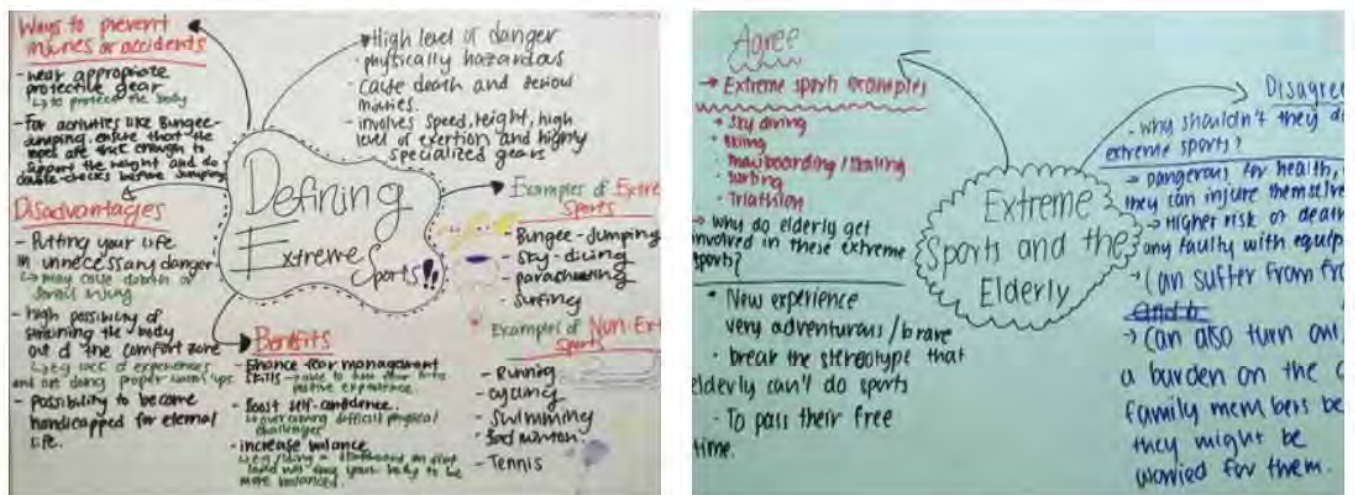 Ways to prevent
injuries or accidents
- wear appropriate
protective gear
↳ to protect the body
- For activities like Bungee-
jumping, ensure that the
ropes are enough to
support the weight and do
double-checks before jumping
Disadvantages
- Putting your life
in unnecessary danger
↳ may cause death or
injury
- high possibility of
straining the body
out of the comfort zone
↳ e.g. lack of experiences
and not doing proper warm ups
- possibility to become
handicapped for eternal
life.
Defining
Extreme
Sports!!
• High level of danger
· physically hazardous
· cause death and serious
injuries.
· involves speed, height, high
level of exertion and highly
specialized gears
Examples of Extre
Sports
- Bungee-Jumping
- Sky-diving
- parachuting
- Surfing
Examples of Non-Ext
Sports
- Running
- cycling
- Swimming
- Badminton.
- Tennis
Benefits
- Enhance fear management
skills → have to turn into
positive experience
- Boost self-confidence.
↳ overcoming difficult physical
challenges
- increase balance
↳ e.g. riding a on
land your body to be
more balanced.
Agree
→ Extreme sport examples
→ Sky diving
· Skiing
· / Skating
· surfing
· Triathlon
→ why do elderly get
involved in these extreme
sports?
• New experience
very adventurous / brave
· break the stereotype that
elderly can't do sports
- To pass their free
time.
Extreme
Sports and the
Elderly
Disagree
- why shouldn't they d
extreme sports?
→ dangerous for health,
they can injure themselve
→ Higher risk of death
any faulty with equip
→ Can suffer from fr
→ Can also turn out
a burden on the
family members be
they might be
worried for them.